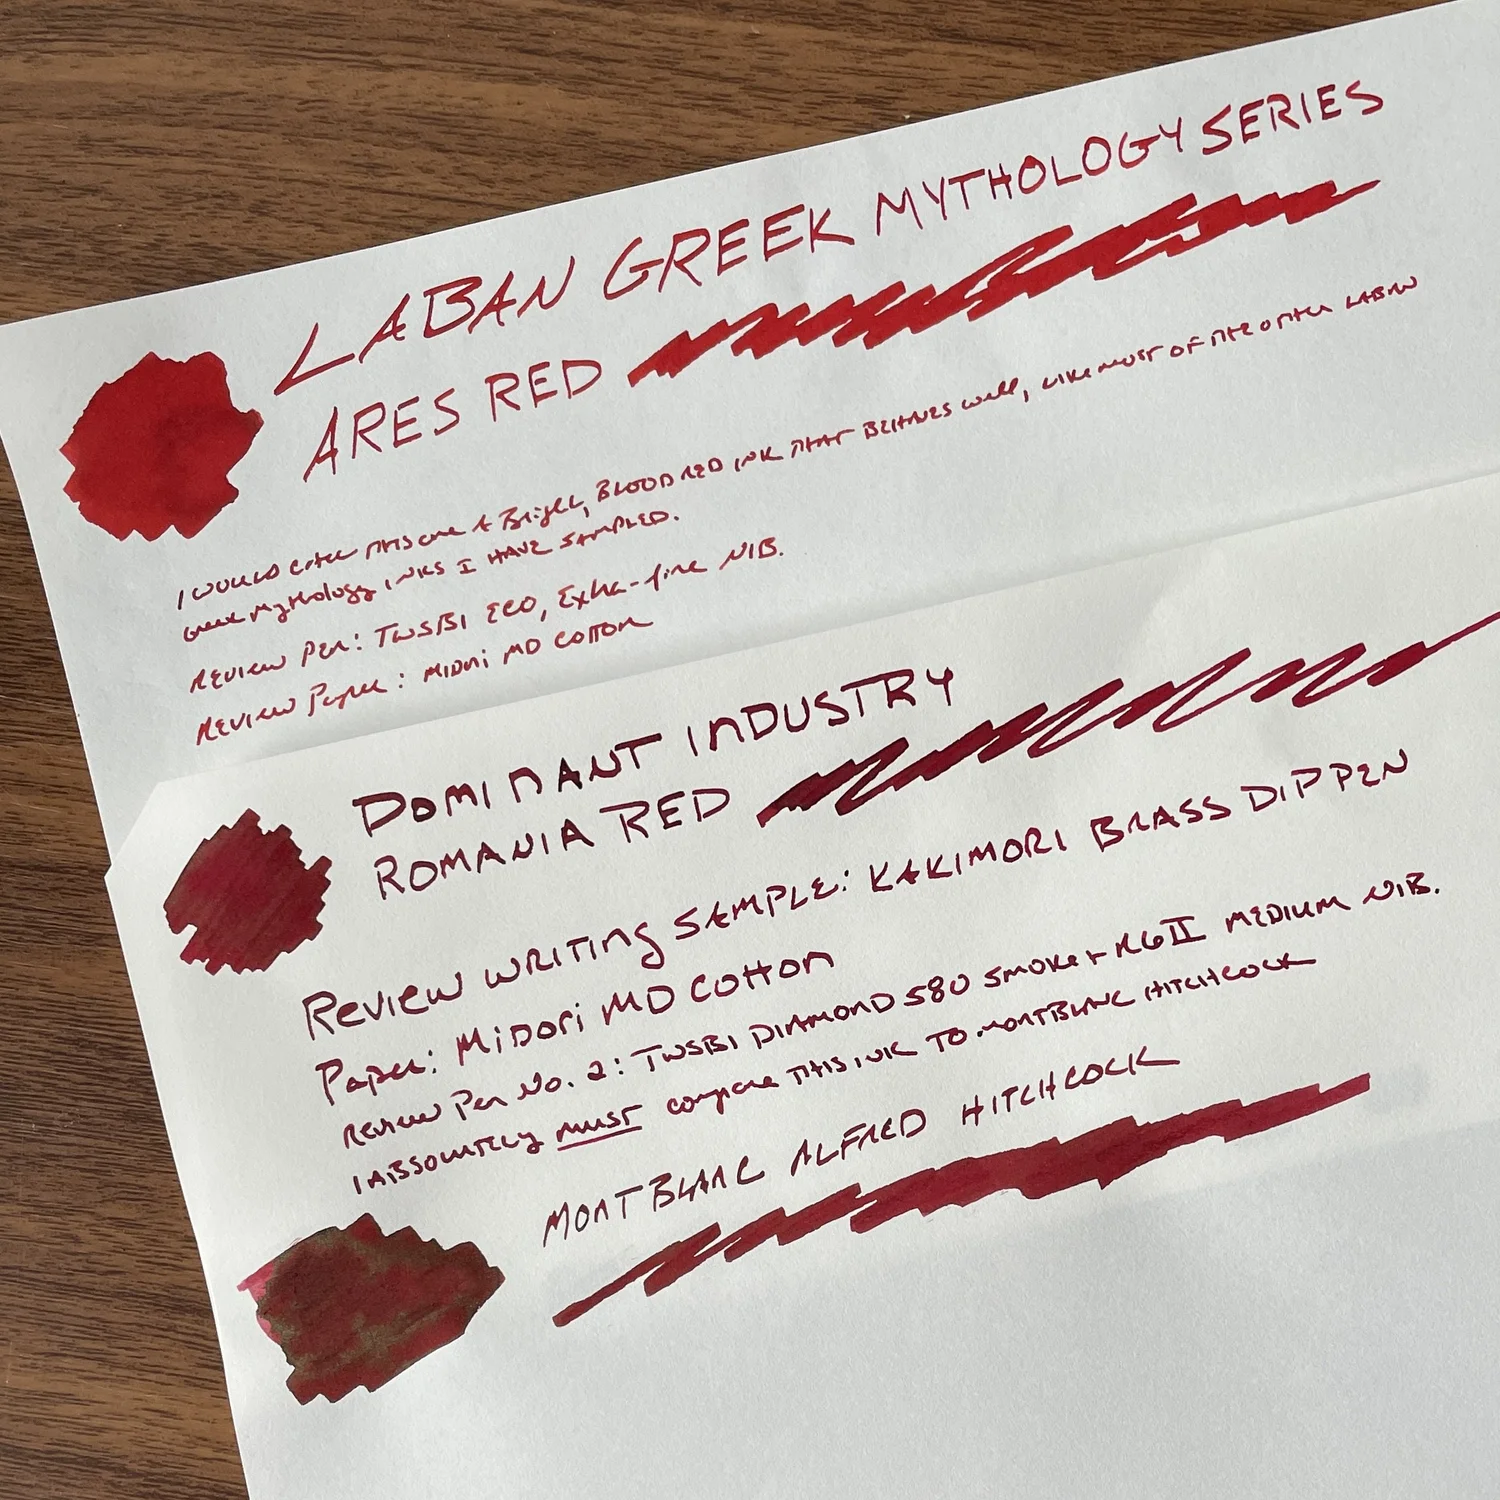 LABAN GREEK MYTHOLOGY SERIES
ARES RED
I WOULD CALL THIS ONE A Bright, BLOOD RED INK THAT BEHAVES well, LIKE MOST OF THE OTHER LABAN
Greek Mythology INKS I HAVE SAMPLED.
REVIEW PEN: TWSBI ECO, Extra-fine NIB.
REVIEW Paper: MIDORI MD COTTON
DOMINANT INDUSTRY
ROMANIA RED
Review WRITING SAMPLE: KAKIMORI BRASS DIP PEN
Paper: MIDORI MD COTTON
Review Pen No. 2: TWSBI DIAMOND 580 SMOKE + RGII MEDIUM NIB.
I ABSOLUTELY MUST compare THIS INK TO MONTBLANC HITCHCOCK
MONTBLANC ALFRED HITCHCOCK